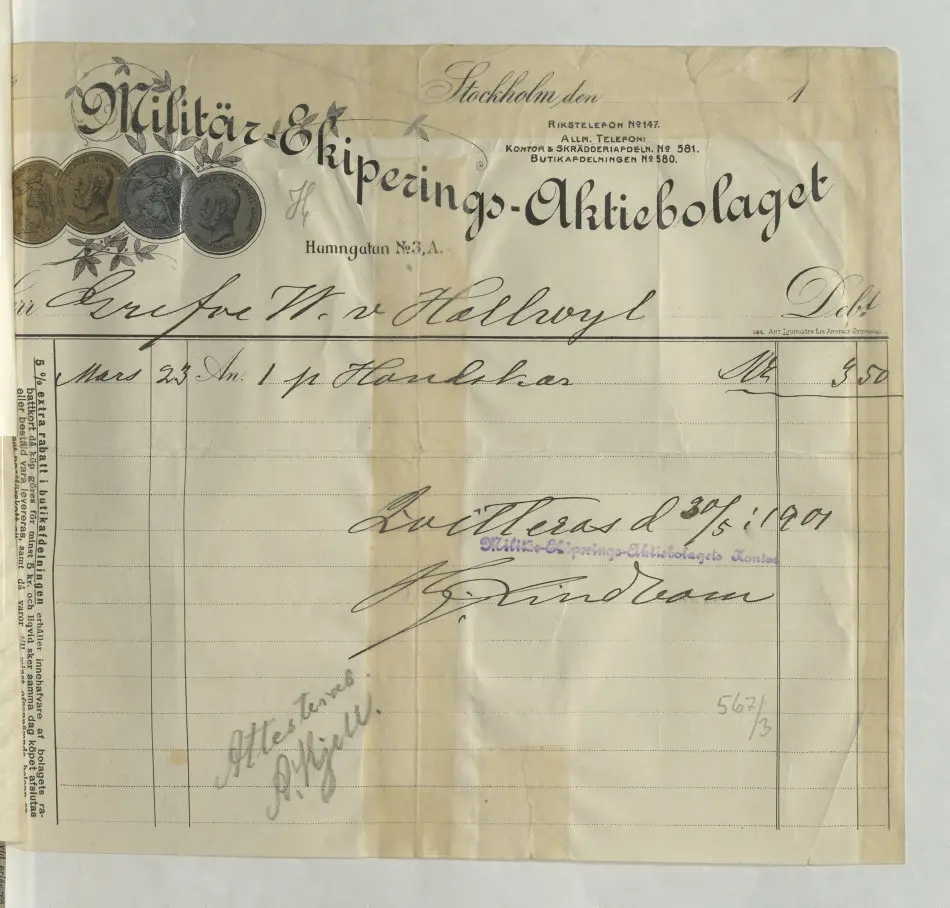 Stockholm den 1
Militär-Ekiperings-Aktiebolaget
RIKSTELEFON No 147.
ALLM. TELEFON:
KONTOR & SKRÄDDERIAFDELN. No 581.
BUTIKAFDELNINGEN No 580.
Hamngatan No 3, A.
Grefve W. v Hallwyl Debt
ANT. LJUNGLÖFS LIT. ANSTALT STOCKHOLM
Mars 23 An. 1 p Handskar 3 50
Qvitteras d 30/5 : 1901
Militär-Ekiperings-Aktiebolagets Kontor
Lindbom
Attesteras
A. Kjell.
567/3
5 % extra rabatt i butikafdelningen erhåller innehafvare af bolagets ra-
battkort då köp göres för minst 5 kr. och liqvid sker samma dag köpet afslutas
eller beställd vara levereras, samt då varor